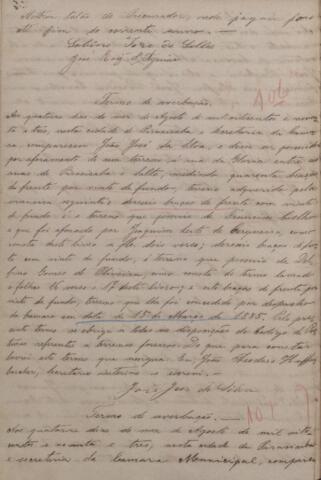 fim do corrente anno. —
Termo de averbação.
106
Aos quatorze dias do mez de Agosto de mil oitocentos e noventa
e tres, nesta cidade de Piracicaba e Secretaria da Camara
compareceu João José da Silva, e disse ser possuidor
por aforamento de um terreno á rua da Gloria entre as
ruas de Piracicaba e medindo quarenta braças
de frente por vinte de fundo, terreno adquirido pela
maneira seguinte: braças de frente com vinte
de fundo é o terreno que possuia de Francisco Coelho
e que foi aforado por Joaquim de Cerqueira, como
consta deste livro a fls dois verso; braças de frente
com vinte de fundo, é terreno que possuia de
Gomes de Oliveira, como consta do termo lavrado
a folhas 16 verso e 17 deste livro; e sete braças de frente por
vinte de fundo, terreno que lhe foi concedido por despacho
da camara em data de 15 de Março de 1885. Pelo presente
termo se obriga a todas as disposições do Codigo de Posturas
referentes a terrenos foreiros. Do que para constar
lavrei este termo que assigna. Eu, João Theodoro
Secretario interino o escrevi.
João José da Silva
Termo de averbação. —
107
Aos quatorze dias do mez de Agosto de mil oitocentos
e noventa e tres, nesta cidade de Piracicaba
e secretaria da Camara Municipal,